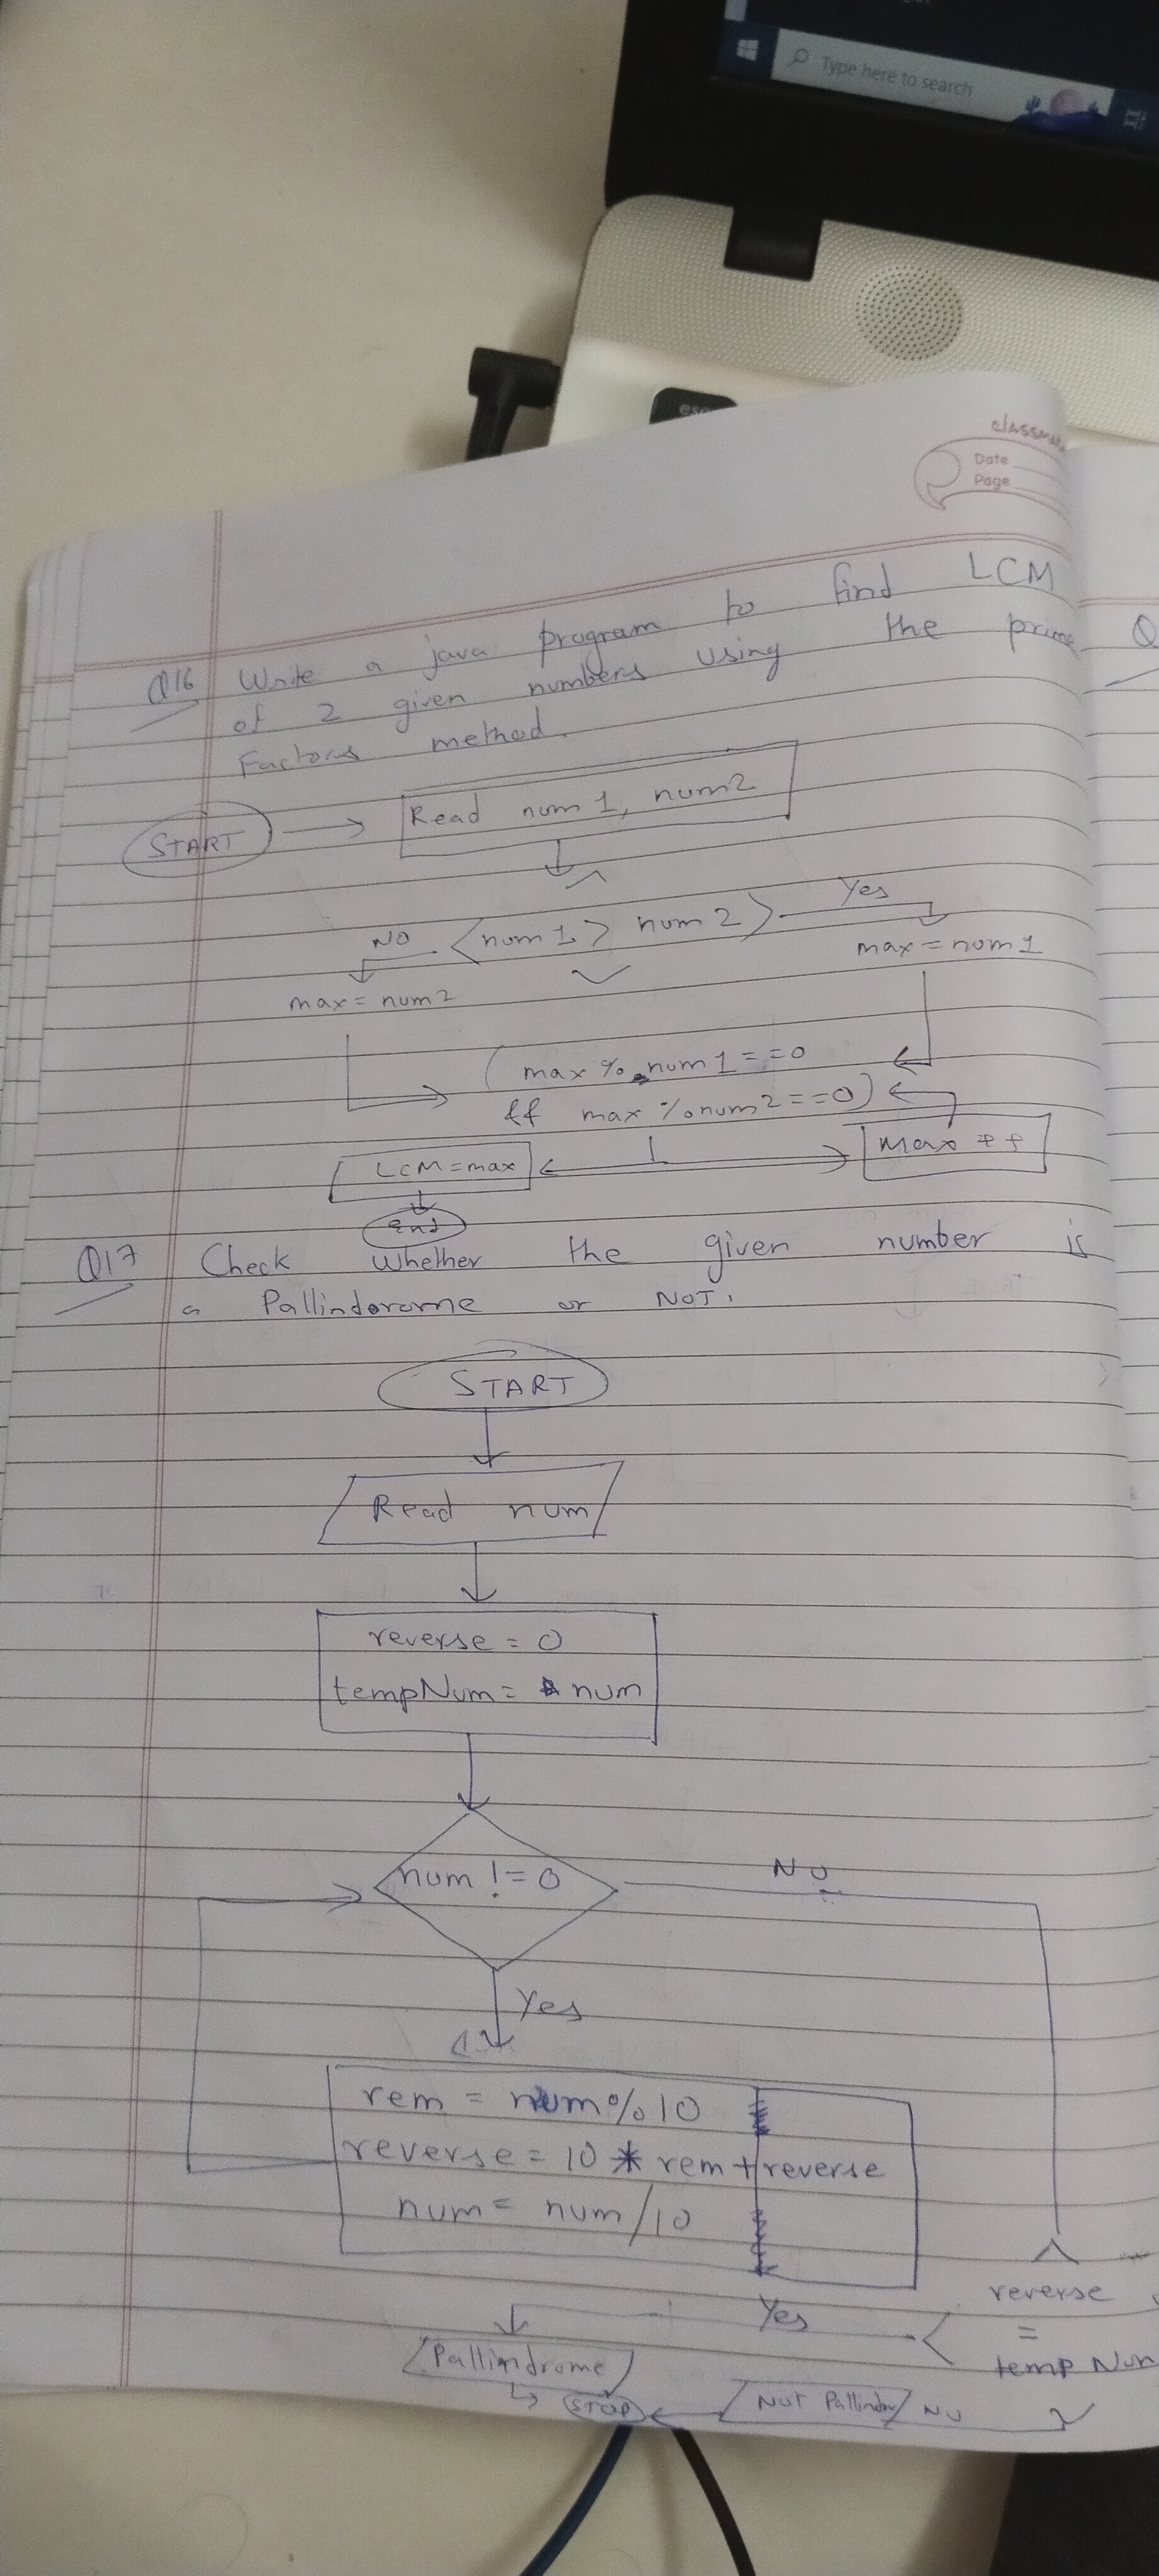 Type here to search
esc
classma
Date
Page
Q16 Write a java program to find LCM
of 2 given numbers using the prime
Factors method.
START
Read num1, num2
num1 > num2
Yes
NO
max = num1
max = num2
max % num1 == 0
&& max % num2 == 0
LCM = max
Max ++
End
Q17 Check whether the given number is
a Pallindorome or NOT.
START
Read num
reverse = 0
tempNum = num
num != 0
NO
Yes
rem = num % 10
reverse = 10 * rem + reverse
num = num / 10
reverse
=
temp Num
Yes
Pallindrome
STOP
Not
NO
Q